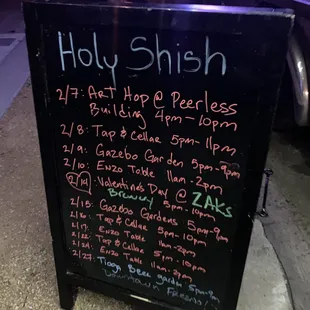 Holy Shish
2/7: ART Hop @ Peerless
Building 4pm-10pm
2/8: Tap & Cellar 5pm-11pm
2/9: Gazebo Garden 5pm-9pm
2/10: Enzo Table 11am-2pm
2/14: Valentine's Day @ ZAKs
Brewery 5pm-10pm
2/15: Gazebo Gardens 5pm-9pm
2/16: Tap & Cellar 5pm-10pm
2/17: Enzo Table 11am-2pm
2/22: Tap & Cellar 5pm-10pm
2/24: Enzo Table 11am-2pm
2/27: Tioga Beer garden 5pm-9pm
Downtown Fresno